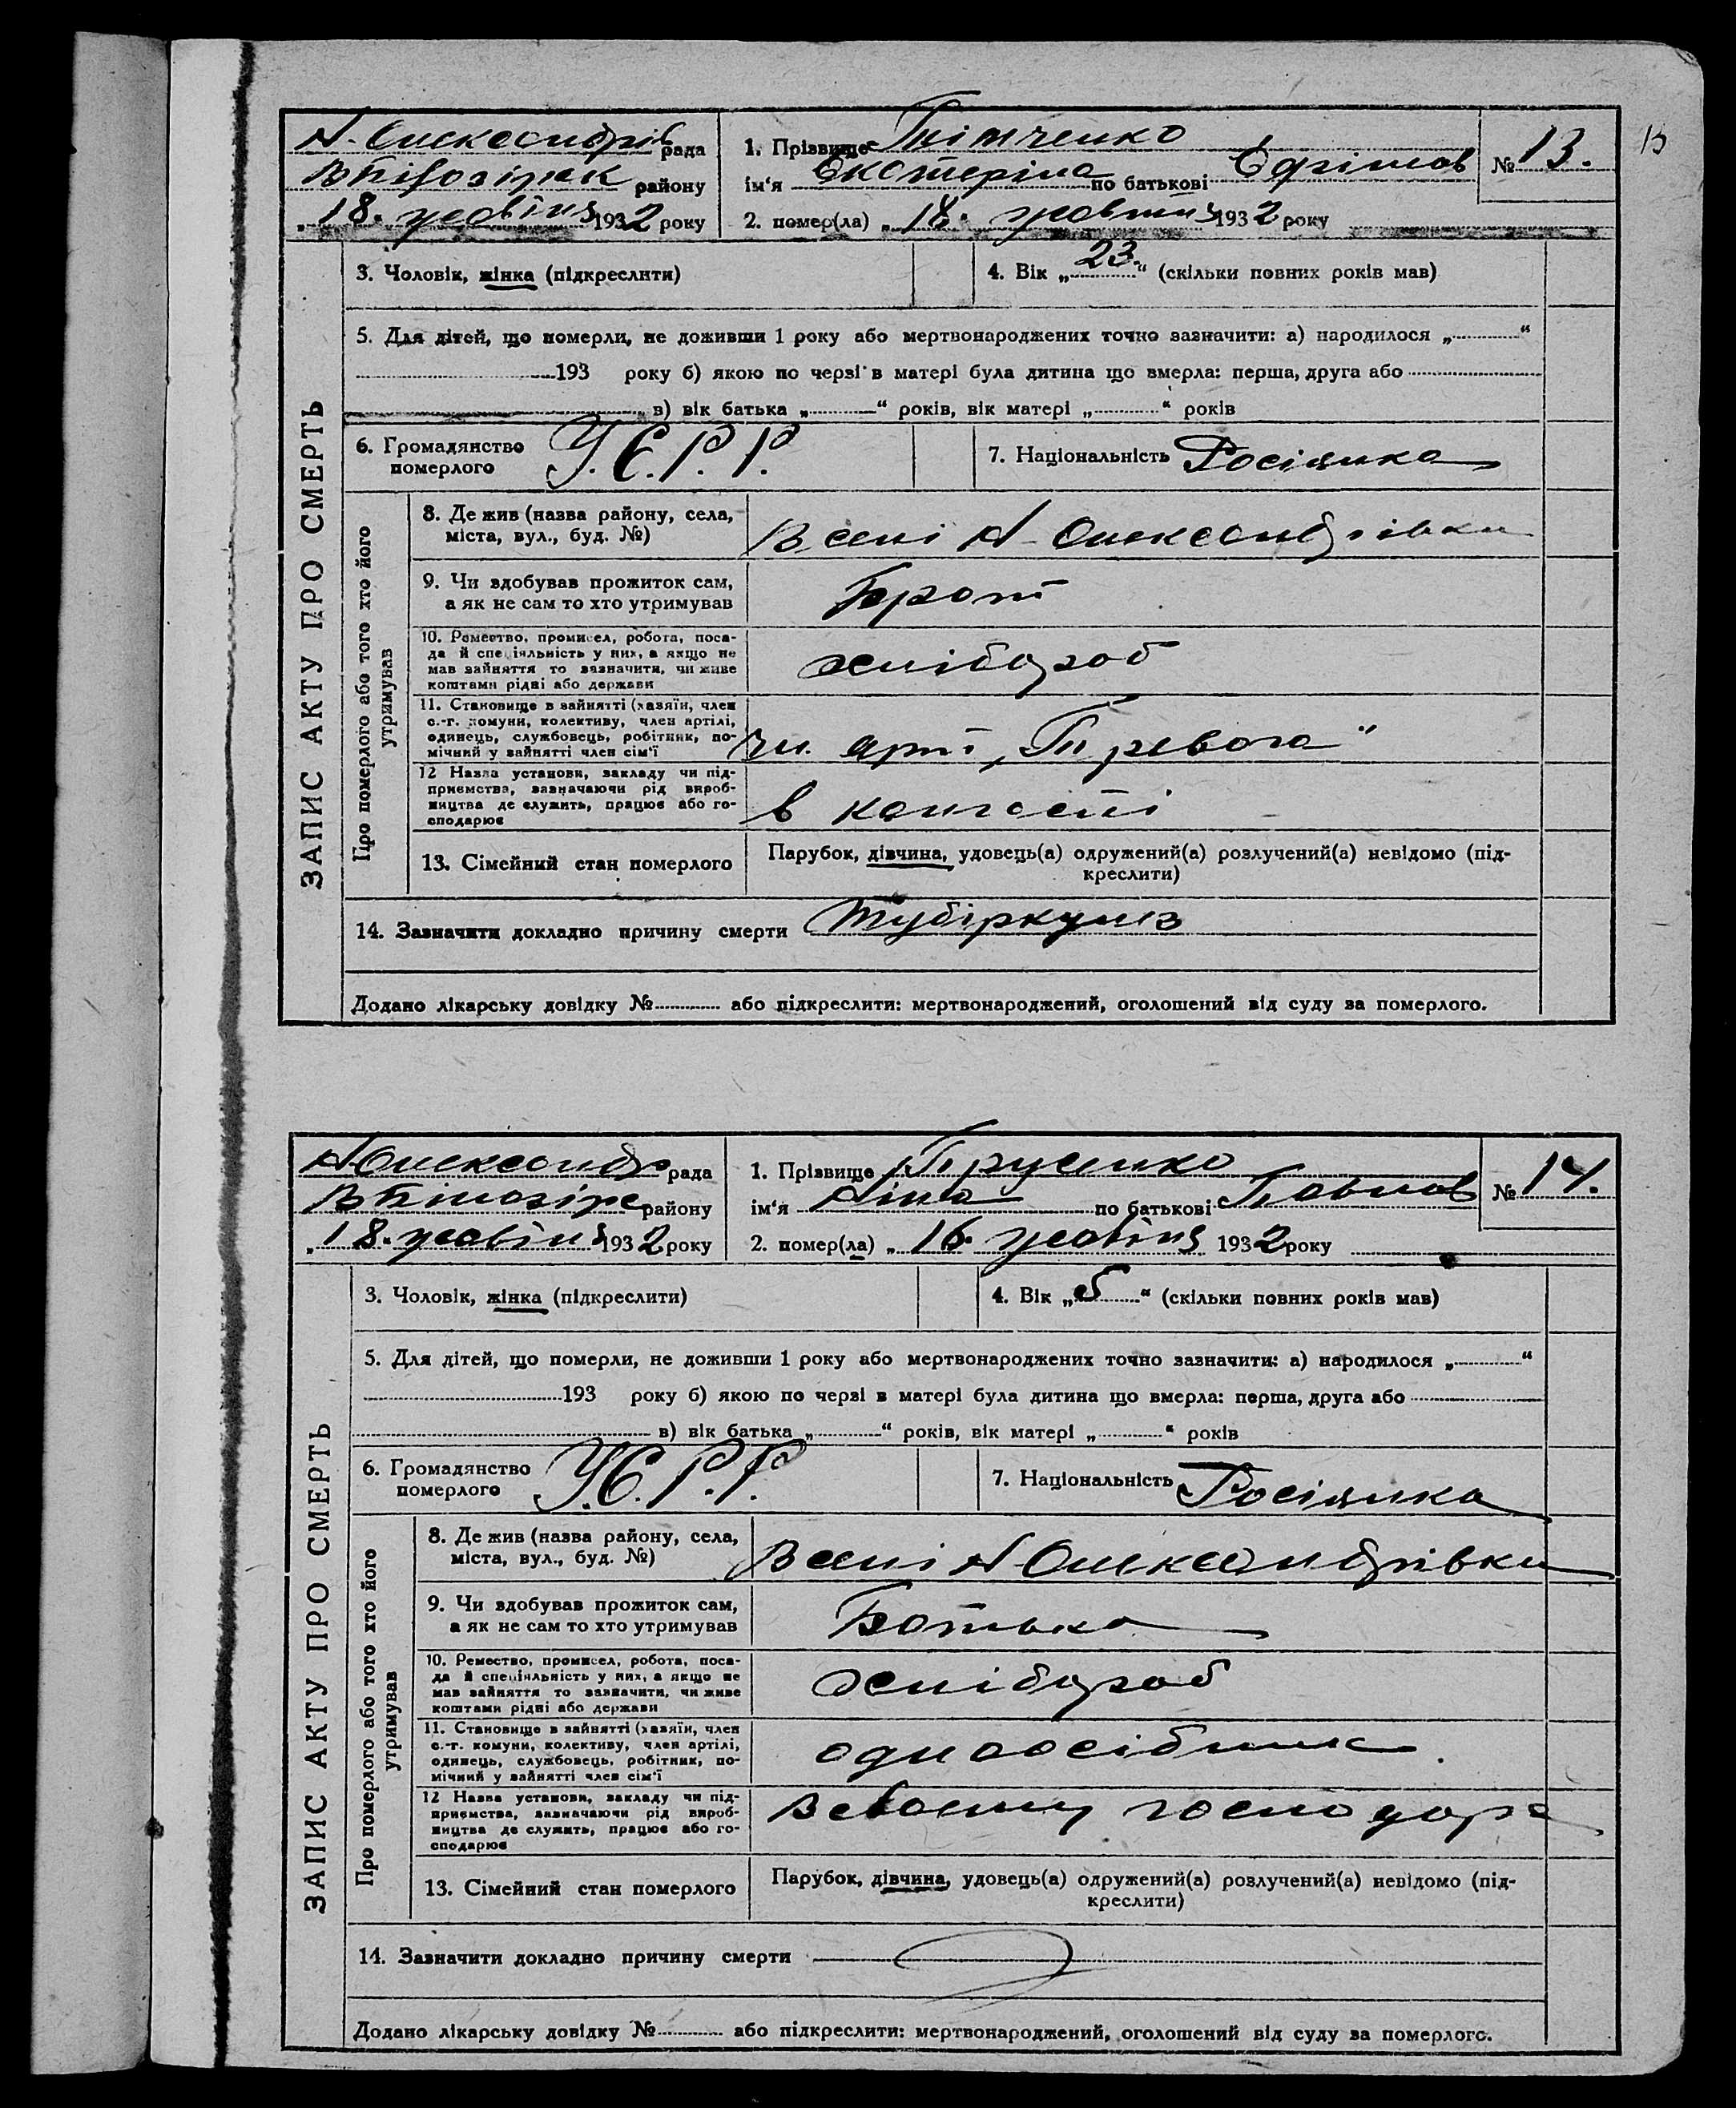 15
Н-Олександрів рада
В Білозірск району
„ 18. жовтня 1932 року
1. Прізвище Тімченко
ім‘я Екатеріна по батькові Єфімов
2. помер(ла) „ 18. жовтня 1932 року
№ 13.
ЗАПИС АКТУ ПРО СМЕРТЬ
3. Чоловік, жінка (підкреслити)
4. Вік „ 23. “ (скільки повних років мав)
5. Для дітей, що померли, не доживши 1 року або мертвонароджених точно зазначити: а) народилося „ “
193 року б) якою по черзі в матері була дитина що вмерла: перша, друга або
в) вік батька „ “ років, вік матері „ “ років
6. Громадянство
померлого У.С.Р.Р.
7. Національність Росіянка
Про померлого або того хто його
утримував
8. Де жив (назва району, села,
міста, вул., буд. №)
В селі Н-Олександрівки
9. Чи здобував прожиток сам,
а як не сам то хто утримував
Брат
10. Ремество, промисел, робота, поса-
да й спеціяльність у них, а якщо не
мав зайняття то зазначити, чи живе
коштами рідні або держави
хлібороб
11. Становище в зайнятті (хазяїн, член
с.-г. комуни, колективу, член артілі,
одинець, службовець, робітник, по-
мічний у зайнятті член сім‘ї
чл. арт. „Тревога“
12 Назва установи, закладу чи під-
приемства, зазначаючи рід вироб-
ництва де служить, працює або го-
сподарює
в колгоспі
13. Сімейний стан померлого
Парубок, дівчина, удовець(а) одружений(а) розлучений(а) невідомо (під-
креслити)
14. Зазначити докладно причину смерти Тубіркульз
Додано лікарську довідку № або підкреслити: мертвонароджений, оголошений від суду за померлого.
Н-Олександр рада
В Білозірс району
„ 18. жовтня 1932 року
1. Прізвище
ім‘я Ніна по батькові Павлов
2. помер(ла) „ 16. жовтня 1932 року
№ 14.
ЗАПИС АКТУ ПРО СМЕРТЬ
3. Чоловік, жінка (підкреслити)
4. Вік „ 5 “ (скільки повних років мав)
5. Для дітей, що померли, не доживши 1 року або мертвонароджених точно зазначити: а) народилося „ “
193 року б) якою по черзі в матері була дитина що вмерла: перша, друга або
в) вік батька „ “ років, вік матері „ “ років
6. Громадянство
померлого У.С.Р.Р.
7. Національність Росіянка
Про померлого або того хто його
утримував
8. Де жив (назва району, села,
міста, вул., буд. №)
В селі Н-Олександрівки
9. Чи здобував прожиток сам,
а як не сам то хто утримував
Батько
10. Ремество, промисел, робота, поса-
да й спеціяльність у них, а якщо не
мав зайняття то зазначити, чи живе
коштами рідні або держави
хлібороб
11. Становище в зайнятті (хазяїн, член
с.-г. комуни, колективу, член артілі,
одинець, службовець, робітник, по-
мічний у зайнятті член сім‘ї
одноосібник
12 Назва установи, закладу чи під-
приемства, зазначаючи рід вироб-
ництва де служить, працює або го-
сподарює
В своєму господар
13. Сімейний стан померлого
Парубок, дівчина, удовець(а) одружений(а) розлучений(а) невідомо (під-
креслити)
14. Зазначити докладно причину смерти
Додано лікарську довідку № або підкреслити: мертвонароджений, оголошений від суду за померлого.